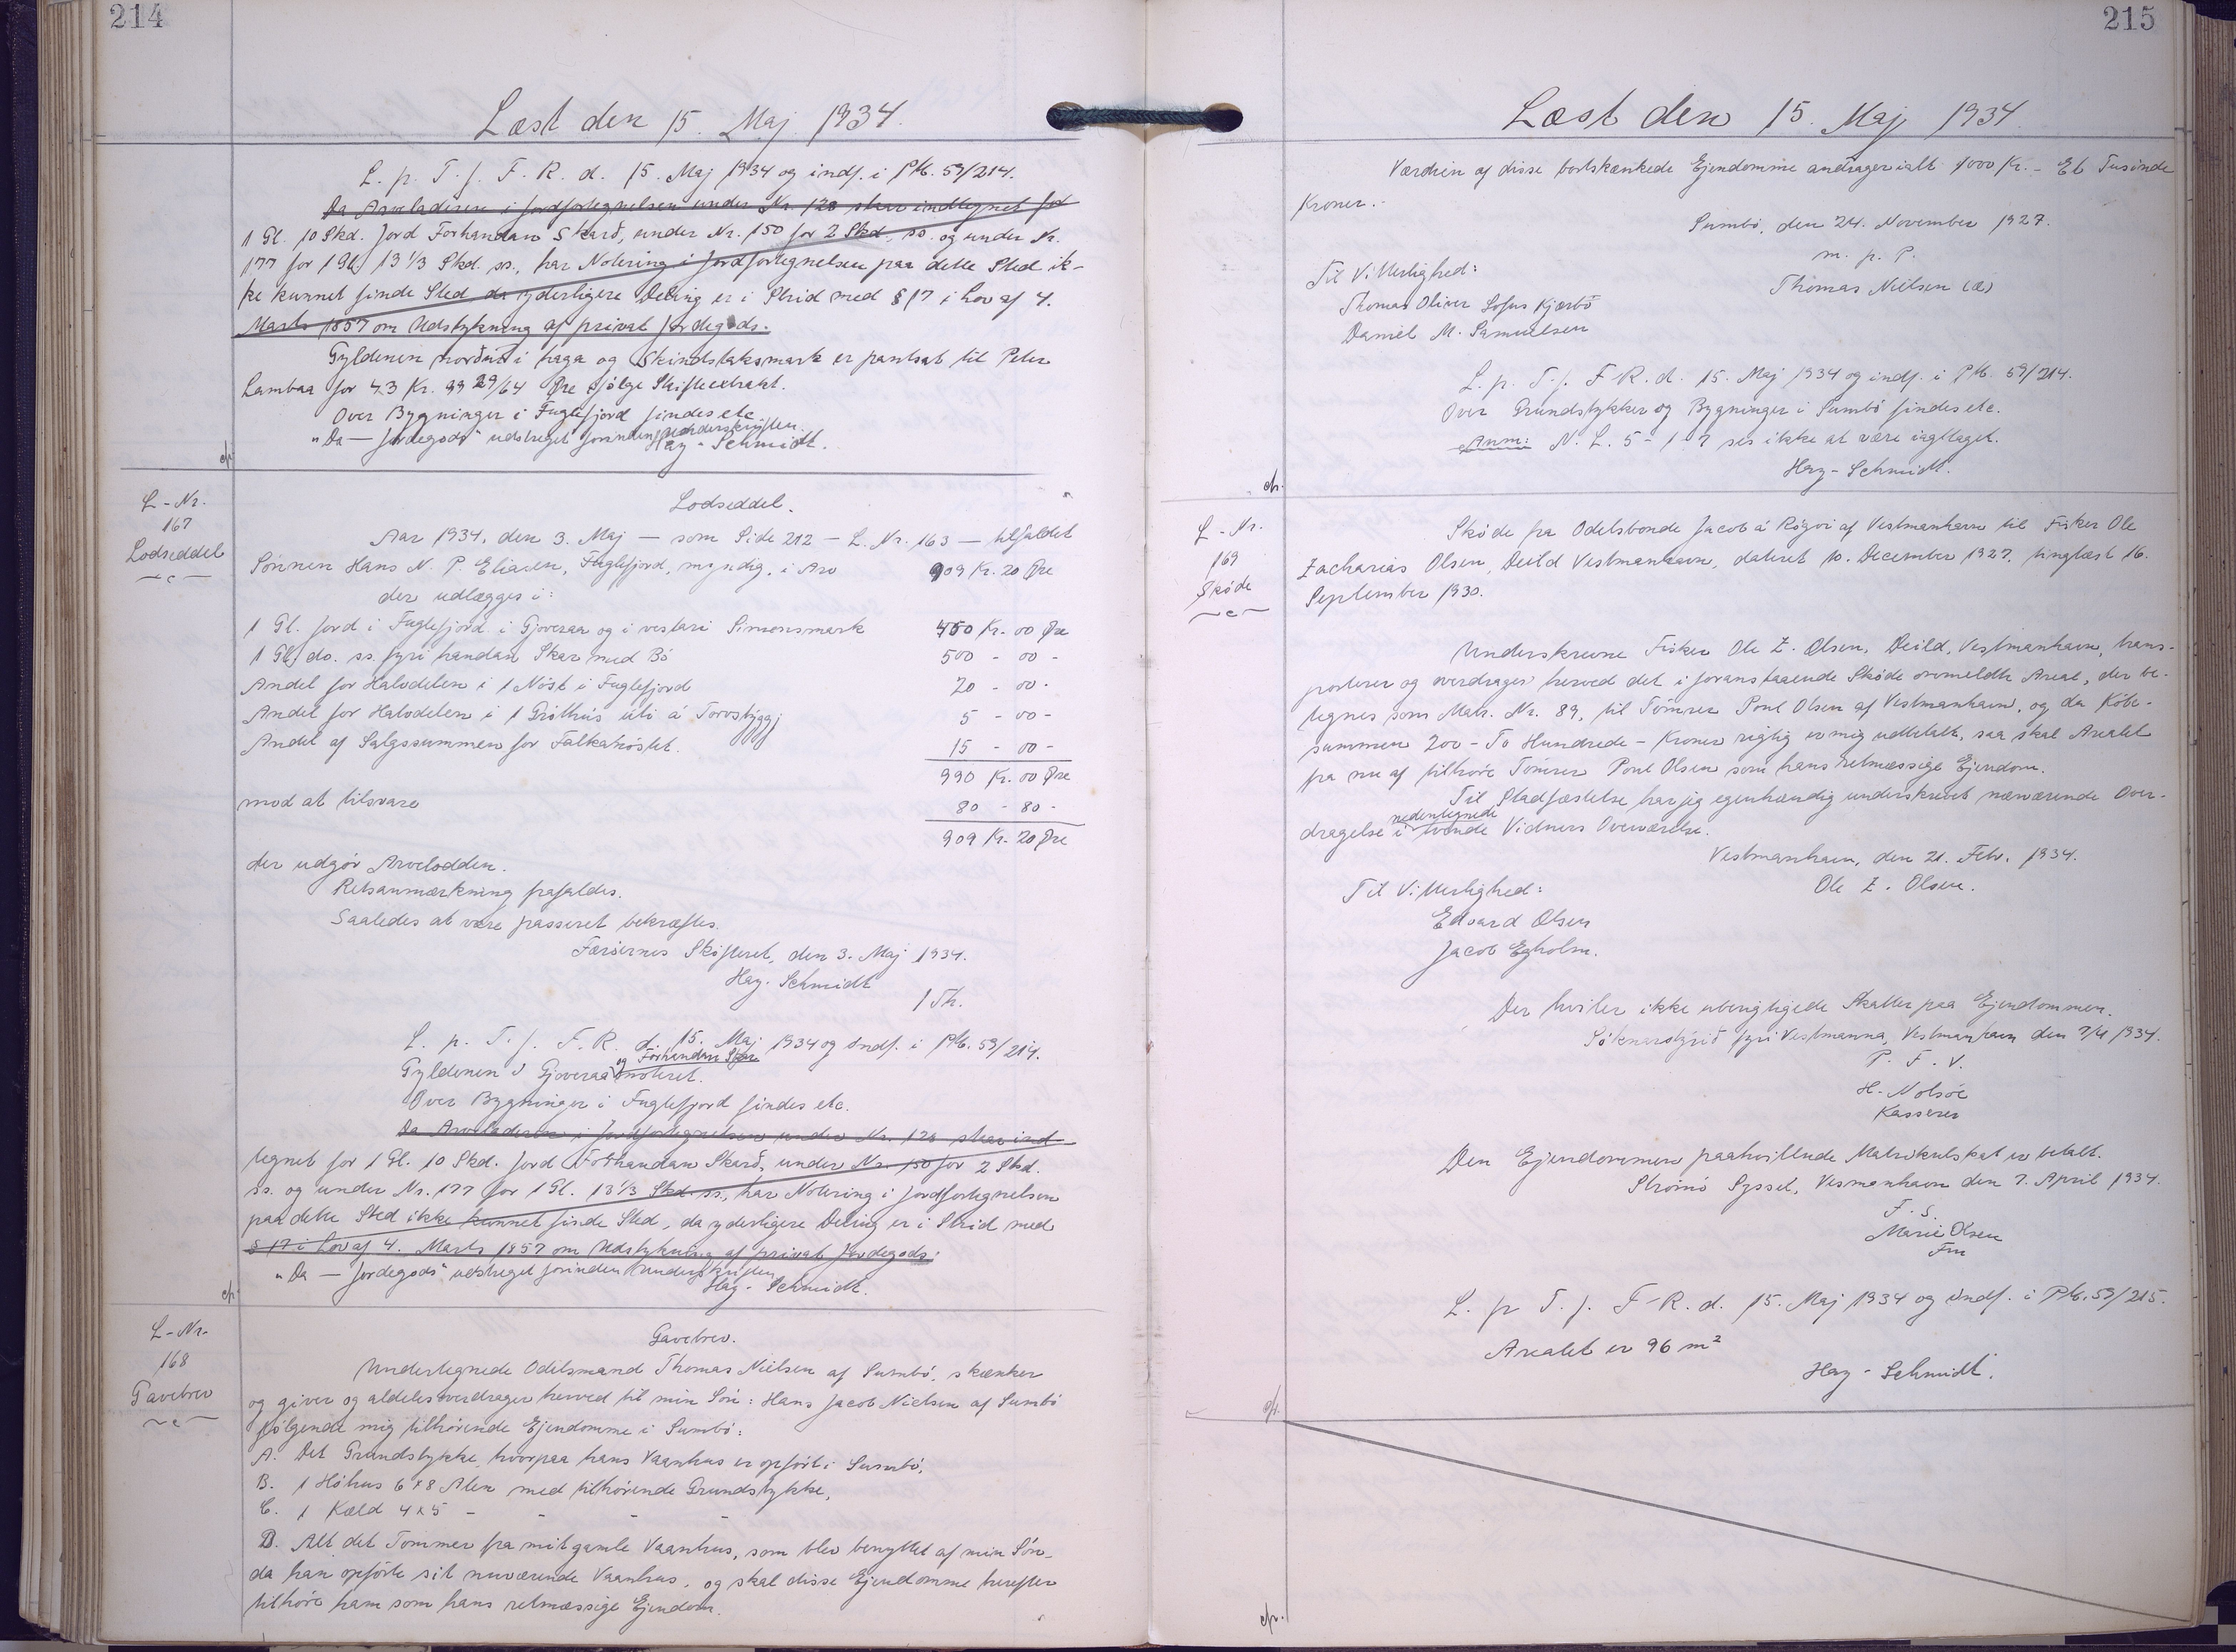 214
Læst den 15. Maj 1934.
L. p. T. f. F. R. d. 15. Maj 1934 og indf. i Ptb. 59/214.
Da Arveladeren i Jordfortegnelsen under Nr. 128 staar indtegnet for
1 Gl. 10 Skd. Jord Forhandan Skarð, under Nr. 150 for 2 Skd. ss. og under Nr.
177 for 1 Gl. 13 1/3 Skd. ss., har Notering i Jordfortegnelsen paa dette Sted ik-
ke kunnet finde Sted da yderligere Deling er i Strid med § 17 i Lov af 4.
Marts 1857 om Udstykning af privat Jordegods.
Gyldenen norðuri i haga og Skindstaksmark er pantsat til Peter
Lambaa for 43 Kr. 99 29/64 Øre ifølge Skifteextrakt.
Over Bygninger i Fuglefjord findes etc.
"Da — Jordegods" udstreget forinden Underskriften.
Hay-Schmidt.
cfr.
L-Nr.
167
Lodseddel
Lodseddel.
Aar 1934, den 3. Maj — som Side 212 — L. Nr. 163 — tilfaldet
Sønnen Hans N. P. Eliasen, Fuglefjord, myndig, i Arv 909 Kr. 20 Øre
der udlægges i:
1 Gl. Jord i Fuglefjord i Gjoveraa og i vestari Simonsmark 450 Kr. 00 Øre
1 Gl. do. ss. fyri handan Skar med Bö 500 - 00 -
Andel for Halvdelen i 1 Nöst i Fuglefjord 20 - 00 -
Andel for Halvdelen i 1 Gróthús úti á Torvsbyggj 5 - 00 -
Andel af Salgssummen for Falkanöstet. 15 - 00 -
990 Kr. 00 Øre
mod at tilsvare 80 - 80 -
909 Kr. 20 Øre
der udgör Arvelodden.
Retsanmærkning frafaldes.
Saaledes at være passeret bekræftes.
Færöernes Skifteret, den 3. Maj 1934.
Hay-Schmidt
1 Th.
L. p. T. f. F. R. d. 15. Maj 1934 og indf. i Ptb. 59/214.
og Forhandan Skar
Gyldenen i Gjoveraa noteret.
Over Bygninger i Fuglefjord findes etc.
Da Arveladeren i Jordfortegnelsen under Nr. 128 staar ind-
tegnet for 1 Gl. 10 Skd. Jord Forhandan Skarð, under Nr. 150 for 2 Skd.
ss. og under Nr. 177 for 1 Gl. 13 1/3 Skd. ss., har Notering i Jordfortegnelsen
paa dette Sted ikke kunnet finde Sted, da yderligere Deling er i Strid med
§ 17 i Lov af 4. Marts 1857 om Udstykning af privat Jordegods.
"Da — Jordegods" udstreget forinden Underskriften
Hay-Schmidt.
cfr.
L-Nr.
168
Gavebrev
Gavebrev.
Undertegnede Odelsmand Thomas Nielsen af Sumbö, skænker
og giver og aldeles overdrager herved til min Sön: Hans Jacob Nielsen af Sumbö
fölgende mig tilhörende Ejendomme i Sumbö:
A. Det Grundstykke, hvorpaa hans Vaanhus er opfört i Sumbö,
B. 1 Höhus 6 x 8 Alen med tilhörende Grundstykke,
C. 1 Kæld 4 x 5 - - - -
D. Alt det Tømmer fra mit gamle Vaanhus, som blev benyttet af min Sön,
da han opförte sit nuværende Vaanhus, og skal disse Ejendomme herefter
tilhöre ham som hans retmæssige Ejendom.
215
Læst den 15. Maj 1934.
Værdien af disse bortskænkede Ejendomme andrager ialt 1000 Kr. - Et Tusinde
Kroner. -
Sumbö, den 24. November 1927.
m. p. P.
Til Vitterlighed:
Thomas Nielsen (æ)
Thomas Oliver Sofus Kjærbö
Daniel M. Samuelsen
L. p. T. f. F. R. d. 15. Maj 1934 og indf. i Ptb. 59/214.
Over Grundstykker og Bygninger i Sumbö findes etc.
Anm: N. L. 5 - 1 - 7 ses ikke at være iagttaget.
Hay-Schmidt.
cfr.
L-Nr.
169
Sköde
Sköde fra Odelsbonde Jacob á Rógvi af Vestmanhavn til Fisker Ole
Zacharias Olsen, Deild Vestmanhavn, dateret 10. December 1927, tinglæst 16.
September 1930.
Underskrevne Fisker Ole Z. Olsen, Deild, Vestmanhavn, trans-
porterer og overdrager herved det i foranstaaende Sköde ommeldte Areal, der be-
tegnes som Matr. Nr. 89, til Tömrer Poul Olsen af Vestmanhavn, og da Köbe-
summen 200 - To Hundrede - Kroner rigtig er mig udbetalt, saa skal Arealet
fra nu af tilhöre Tömrer Poul Olsen som hans retmæssige Ejendom.
Til Stadfæstelse har jeg egenhændig underskrevet nærværende Over-
nedentegnede
dragelse i tvende Vidners Overværelse.
Vestmanhavn, den 21. Febr. 1934.
Til Vitterlighed:
Ole Z. Olsen.
Edvard Olsen
Jacob Egholm.
Der hviler ikke uberigtigede Skatter paa Ejendommen.
Sóknarstýrið fyri Vestmanna, Vestmanhavn den 7/4 1934.
P. F. V.
H. Nolsöe
Kasserer
Den Ejendommen paahvilende Matrikulskat er betalt.
Strömö Syssel, Vesmanhavn den 7. April 1934.
F. S.
Marie Olsen
Fm
L. p. T. f. F-R. d. 15. Maj 1934 og indf. i Ptb. 59/215.
Arealet er 96 m²
Hay-Schmidt.
cfr.
cfr.